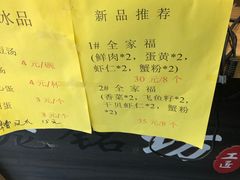 冰品
汤
4元/碗
4元/杯
蛋
3元/个
新品推荐
1# 全家福
(鲜肉*2, 蛋黄*2,
虾仁*2, 蟹粉*2)
30元/8个
2# 全家福
(香菜*2, 飞鱼籽*2,
干贝虾仁*2, 蟹粉*2)
35元/8个